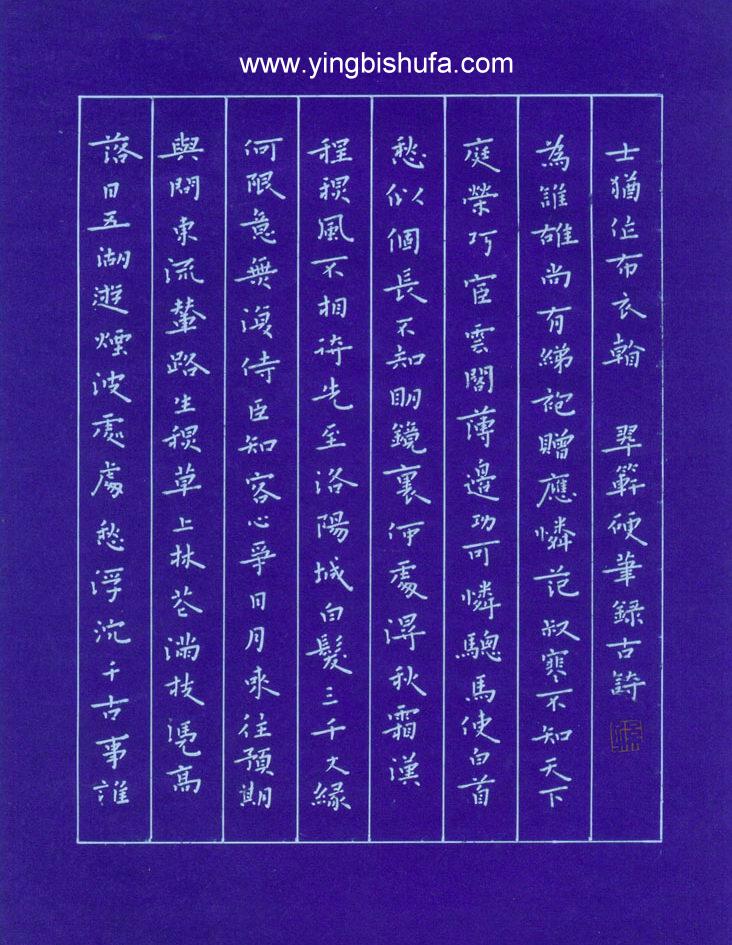 www.yingbishufa.com
落日五湖遊煙波處處愁浮沉千古事誰
與問東流輦路生秋草上林花滿枝憑高
何限意無復侍臣知客心爭日月來往預期
程秋風不相待先至洛陽城白髮三千丈緣
愁似個長不知明鏡裏何處得秋霜漢
庭榮巧宦雲閣薄邊功可憐驄馬使白首
為誰雄尚有綈袍贈應憐范叔寒不知天下
士猶作布衣看 硬筆錄古詩